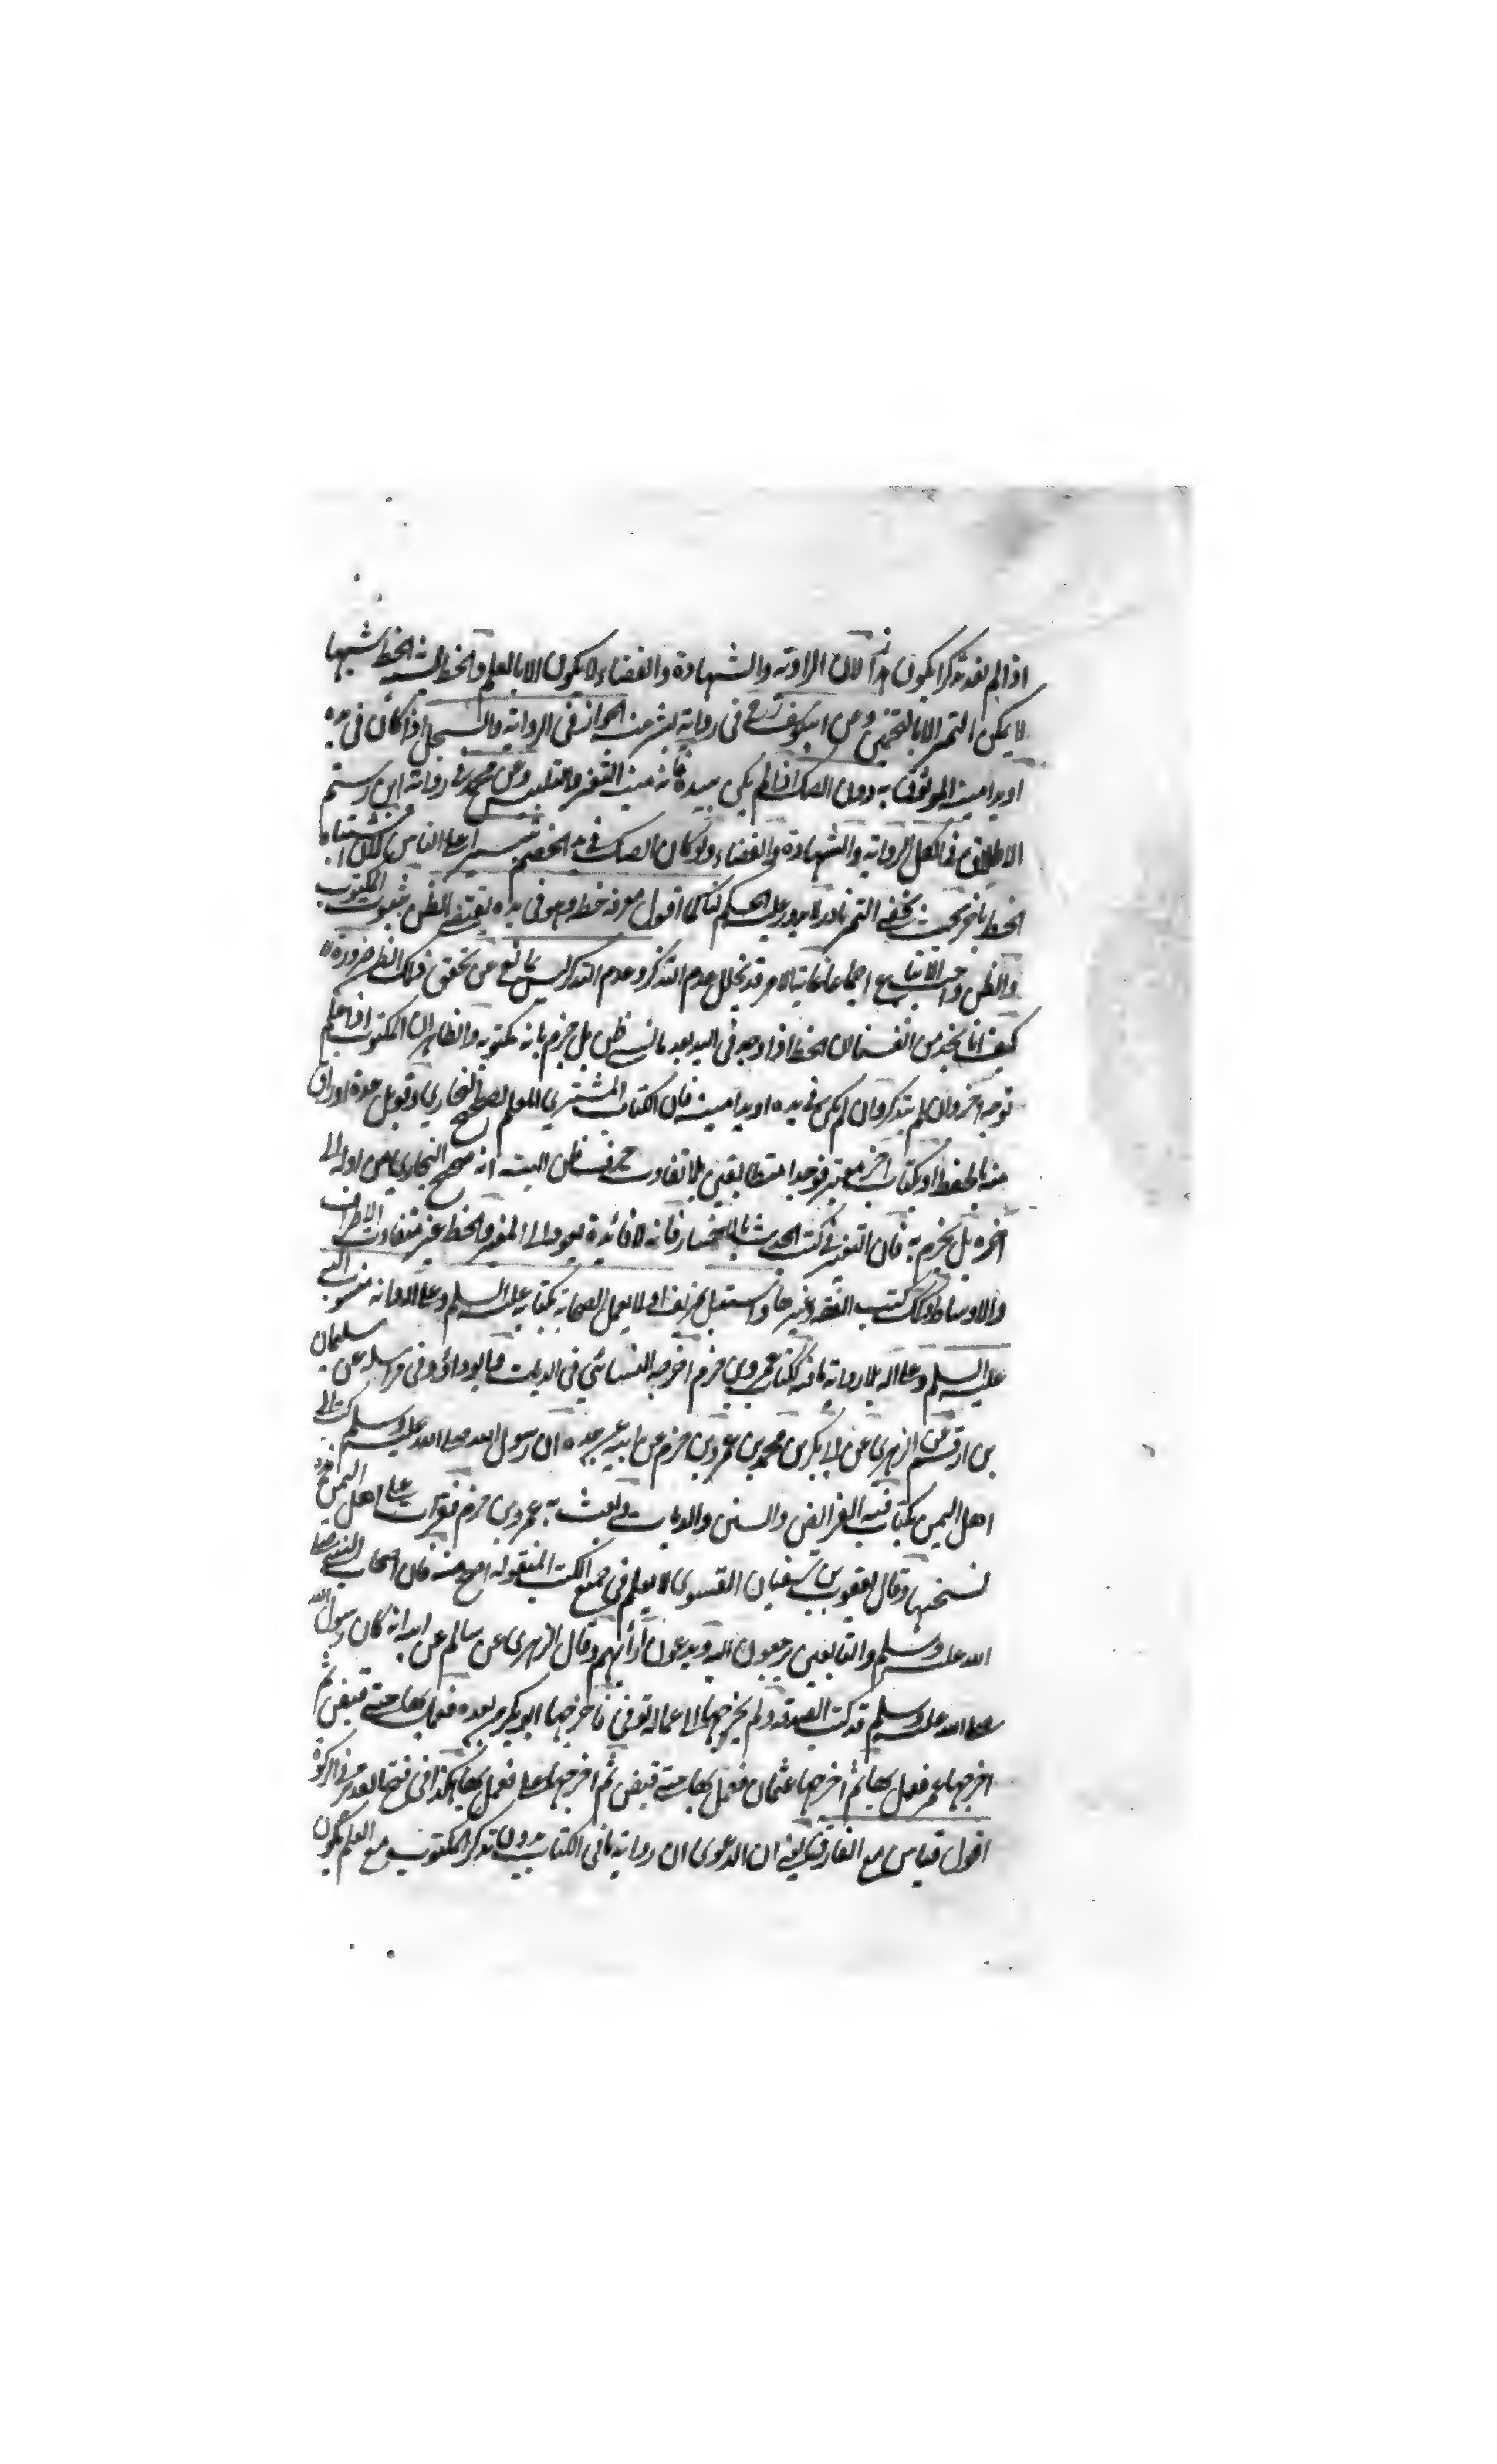 اذا لم يفد تذكرا يكون هدرا لان الرواية والشهادة والقضاء لا يكون الا بالعلم والخط يشبه الخط شبها
لا يمكن التميز الا بالتخمين وعن ابي يوسف رح في رواية بشر عنه الجواز في الرواية والسجل اذا كان في يده
او يد امينه الموثوق به دون الصك اذا لم يكن بيده فانه مبنى التغير والتلبيس وعن محمد في رواية ابن رستم
الاطلاق في الكل الرواية والشهادة والقضاء ولو كان الصك في يد الخصم تيسيرا على الناس لان اشتباه
الخط باخر بحيث يخفى التميز نادر لا يدور عليه الحكم لنا كما اقول معرفة خطه وهو في يده يقتضي الظن بثبوت المكتوب
والظن واجب الاتباع اجماعا غاية الامر قد تخلل عدم التذكر وعدم التذكر ليس بمانع عن تحقق ذلك الظن ضرورة
كيف انا نجد من انفسنا ان الخط اذا وجد في اليد بعد ما نسي ظن بل جزم بانه مكتوبه والظاهر ان المكتوب اذا علم
توجه اخر وان لم يتذكر وان لم يكن في يده او يد امينه فان الكتاب المشتري المعلم بصحيح البخاري وقوبل عدة اوراق
منه بالحفظ او بكتاب اخر معتبر فوجدا متطابقين بلا تفاوت حرف ظن البتة انه صحيح البخاري من اوله الى
اخره بل يجزم به فان التغير في كتب الحديث بالاختصار فانه لا فائدة يعود الى المغير والخط غير متفاوت الاطراف
والاوساط وكذلك كتب الفقه وغيرها واستدل بخ اولا بعمل الصحابة بكتابه عليه السلم وعلى اله وانه منسوب اليه
عليه السلم وعلى اله بلا رواية ما فيه ككتاب عمرو بن حزم اخرجه النسائي في الديات وابو داود في مراسيله عن سليمان
بن ارقم عن الزهري عن ابي بكر بن محمد بن عمرو بن حزم عن ابيه عن جده ان رسول الله صلى الله عليه وسلم كتب الى
اهل اليمن بكتاب فيه الفرائض والسنن والديات وبعث به عمرو بن حزم فقرأت على اهل اليمن وهذه
نسختها وقال يعقوب بن سفيان الفسوي لا يعلم في جميع الكتب المنقولة اصح منه فان اصحاب النبي صلى
الله عليه وسلم والتابعين يرجعون اليه ويدعون آرائهم وقال الزهري عن سالم عن ابيه انه كان رسول الله
صلى الله عليه وسلم قد كتب الصدقة ولم يخرجها الى عماله توفي فاخرجها ابو بكر من بعده فعمل بها حتى قبض ثم
اخرجها عمر فعمل بها ثم اخرجها عثمان فعمل بها حتى قبض ثم اخرجها علي فعمل بها هكذا في فتح القدير في الزكوة
اقول قياس مع الفارق يعني ان الدعوى ان رواية ما في الكتاب بدون تذكر المكتوب مع العلم بكون